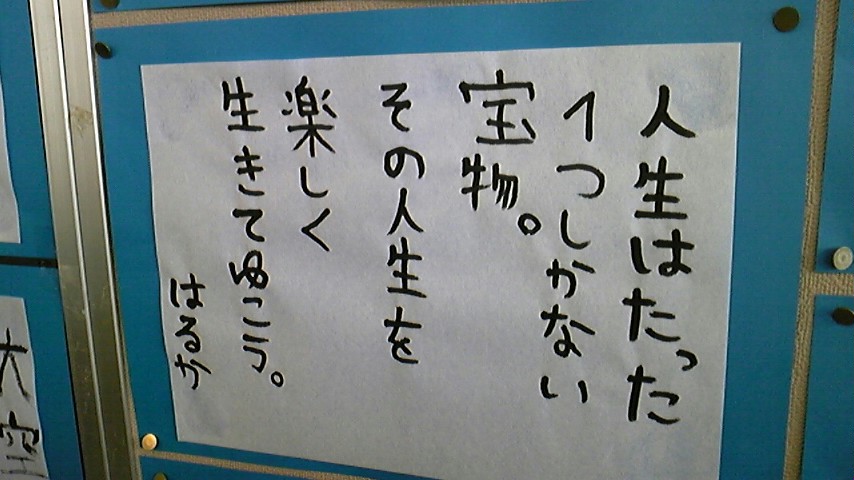 人生はたった
1つしかない
宝物。
その人生を
楽しく
生きてゆこう。
はるか
大空